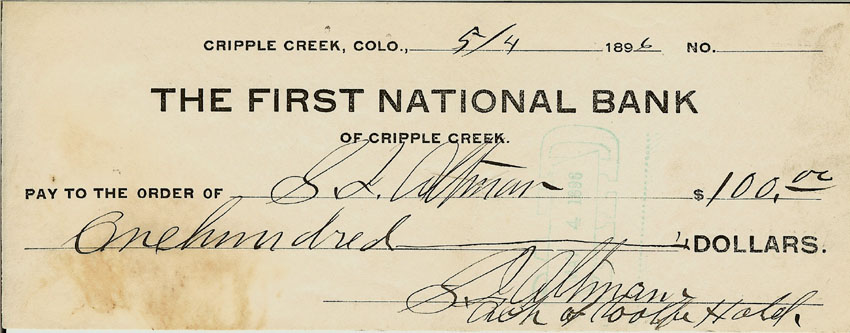 CRIPPLE CREEK, COLO., 5/4 1896 NO.
THE FIRST NATIONAL BANK
OF CRIPPLE CREEK.
PAY TO THE ORDER OF S. L. Altman $ 100.00
One hundred DOLLARS.
S. L. Altman
of Wolfe Hotel.
4 1896